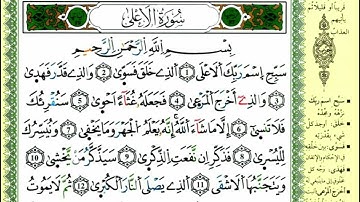 سُورَةُ الأَعْلَى
بِسْمِ اللَّهِ الرَّحْمَنِ الرَّحِيمِ
سَبِّحِ اسْمَ رَبِّكَ الأَعْلَى (1) الَّذِي خَلَقَ فَسَوَّى (2) وَالَّذِي قَدَّرَ فَهَدَى
(3) وَالَّذِي أَخْرَجَ الْمَرْعَى (4) فَجَعَلَهُ غُثَاءً أَحْوَى (5) سَنُقْرِئُكَ
فَلَا تَنسَى (6) إِلَّا مَا شَاءَ اللَّهُ إِنَّهُ يَعْلَمُ الْجَهْرَ وَمَا يَخْفَى (7) وَنُيَسِّرُكَ
لِلْيُسْرَى (8) فَذَكِّرْ إِن نَّفَعَتِ الذِّكْرَى (9) سَيَذَّكَّرُ مَن يَخْشَى (10)
وَيَتَجَنَّبُهَا الأَشْقَى (11) الَّذِي يَصْلَى النَّارَ الْكُبْرَى (12) ثُمَّ لَا يَمُوتُ